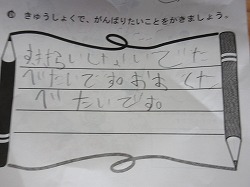 きゅうしょくで、がんばりたいことをかきましょう。
すききらいしないでた
べたいです。おお くた
べたいです。